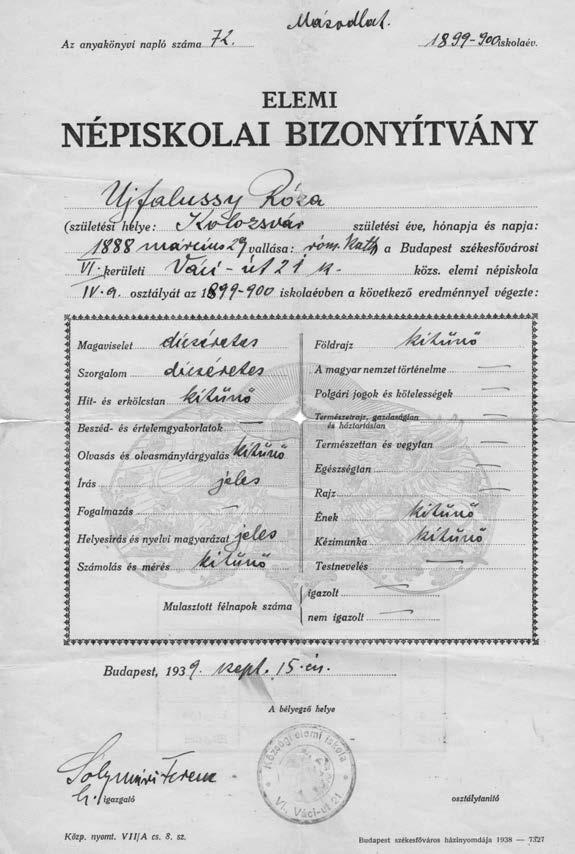 Másodlat.
Az anyakönyvi napló száma 72. 1899-900 iskolaév.
ELEMI
NÉPISKOLAI BIZONYÍTVÁNY
Ujfalussy Róza
(születési helye: Kolozsvár születési éve, hónapja és napja:
1888 március 29 vallása: róm. kath a Budapest székesfővárosi
VI. kerületi Váci-út 21 közs. elemi népiskola
IV. a. osztályát az 1899-900 iskolaévben a következő eredménnyel végezte:
Magaviselet dicséretes
Szorgalom dicséretes
Hit- és erkölcstan kitünő
Beszéd- és értelemgyakorlatok —
Olvasás és olvasmánytárgyalás kitünő
Írás jeles
Fogalmazás —
Helyesírás és nyelvi magyarázat jeles
Számolás és mérés kitünő
Földrajz kitünő
A magyar nemzet történelme —
Polgári jogok és kötelességek —
Természetrajz, gazdaságtan
és háztartástan —
Természettan és vegytan —
Egészségtan —
Rajz —
Ének kitünő
Kézimunka kitünő
Testnevelés —
Mulasztott félnapok száma
igazolt —
nem igazolt —
Budapest, 1939. szept. 15-én.
A bélyegző helye
Solymári Ferenc
h. igazgató
osztálytanító
Községi elemi iskola
VI. Váci-út 21
Közp. nyomt. VII/A cs. 8. sz.
Budapest székesfőváros házinyomdája 1938 — 7327